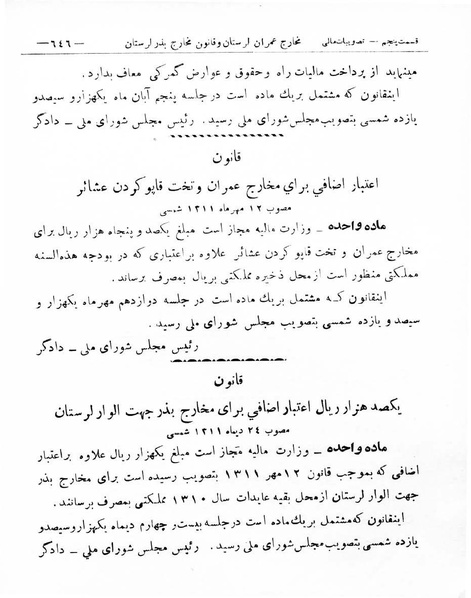 قسمت پنجم — تصویبات مالی مخارج عمران لرستان و قانون مخارج بذر لرستان —۶۴۶—
مینهاید از پرداخت مالیات راه و حقوق و عوارض گمرکی معاف بدارد.
اینقانون که مشتمل بر یك ماده است در جلسه پنجم آبان ماه یکهزار و سیصد و
یازده شمسی بتصویب مجلس شورای ملی رسید. رئیس مجلس شورای ملی ــ دادگر
قانون
اعتبار اضافی برای مخارج عمران و تخت قاپو کردن عشائر
مصوب ۱۲ مهر ماه ۱۳۱۱ شمسی
ماده واحده ــ وزارت مالیه مجاز است مبلغ یکصد و پنجاه هزار ریال برای
مخارج عمران و تخت قاپو کردن عشائر علاوه بر اعتباری که در بودجه هذه السنه
مملکتی منظور است از محل ذخیره مملکتی بریال بمصرف برساند.
اینقانون که مشتمل بریك ماده است در جلسه دوازدهم مهرماه یکهزار و
سیصد و یازده شمسی بتصویب مجلس شورای ملی رسید.
رئیس مجلس شورای ملی ــ دادگر
قانون
یکصد هزار ریال اعتبار اضافی برای مخارج بذر جهت الوار لرستان
مصوب ۲۴ دیماه ۱۳۱۱ شمسی
ماده واحده ــ وزارت مالیه مجاز است مبلغ یکهزار ریال علاوه بر اعتبار
اضافی که بموجب قانون ۱۲ مهر ۱۳۱۱ بتصویب رسیده است برای مخارج بذر
جهت الوار لرستان از محل بقیه عایدات سال ۱۳۱۰ مملکتی بمصرف برسانند.
اینقانون که مشتمل بریك ماده است در جلسه بیست و چهارم دیماه یکهزار و سیصد و
یازده شمسی بتصویب مجلس شورای ملی رسید. رئیس مجلس شورای ملی ــ دادگر